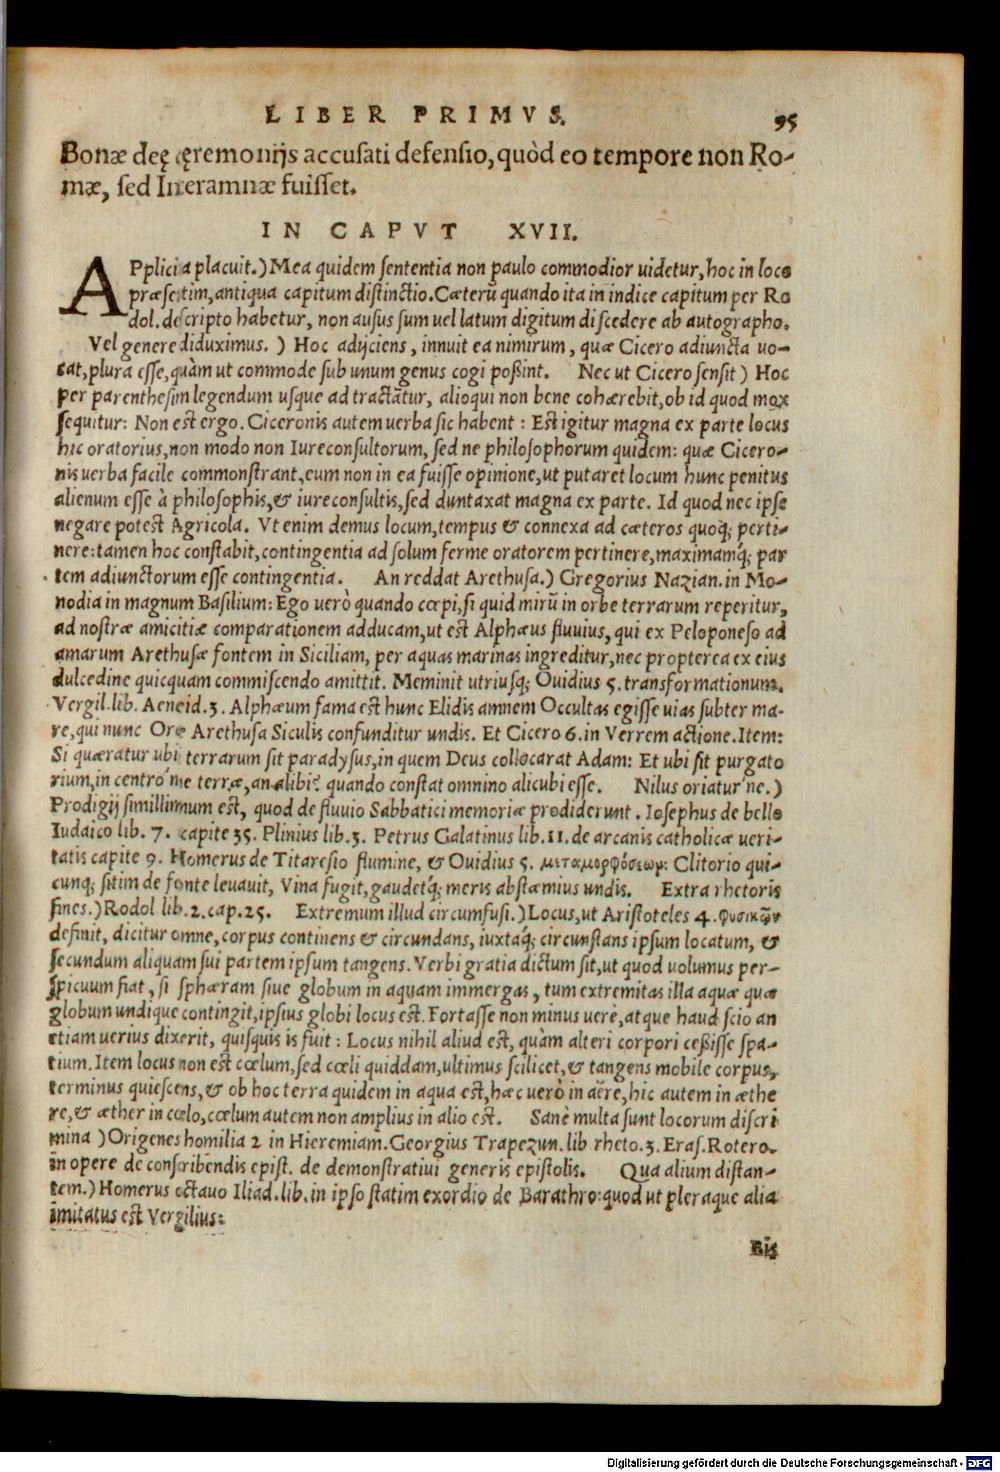 LIBER PRIMVS. 95
Bonæ deę cęremonijs accusati defensio, quòd eo tempore non Ro-
mæ, sed Interamnæ fuisset.
IN CAPVT XVII.
APplicita placuit.) Mea quidem sententia non paulo commodior uidetur, hoc in loco
præsertim, antiqua capitum distinctio. Cæterũ quando ita in indice capitum per Ro
dol. descripto habetur, non ausus sum uel latum digitum discedere ab autographo.
Vel genere diduximus. ) Hoc adijciens, innuit ea nimirum, quæ Cicero adiuncta uo-
cat, plura esse, quàm ut commode sub unum genus cogi poßint. Nec ut Cicero sensit) Hoc
per parenthesim legendum usque ad tractãtur, alioqui non bene cohærebit, ob id quod mox
sequitur: Non est ergo. Ciceronis autem uerba sic habent : Est igitur magna ex parte locus
hic oratorius, non modo non Iureconsultorum, sed ne philosophorum quidem: quæ Cicero-
nis uerba facile commonstrant, eum non in ea fuisse opinione, ut putaret locum hunc penitus
alienum esse à philosophis, & iureconsultis, sed duntaxat magna ex parte. Id quod nec ipse
negare potest Agricola. Vt enim demus locum, tempus & connexa ad cæteros quoq; perti-
nere: tamen hoc constabit, contingentia ad solum ferme oratorem pertinere, maximamq́; par
tem adiunctorum esse contingentia. An reddat Arethusa.) Gregorius Nazian. in Mo-
nodia in magnum Basilium: Ego uerò quando cœpi, si quid mirũ in orbe terrarum reperitur,
ad nostræ amicitiæ comparationem adducam, ut est Alphæus fluuius, qui ex Peloponeso ad
amarum Arethusæ fontem in Siciliam, per aquas marinas ingreditur, nec propterea ex eius
dulcedine quicquam commiscendo amittit. Meminit utriusq; Ouidius 5. transformationum.
Vergil. lib. Aeneid. 3. Alphæum fama est hunc Elidis amnem Occultas egisse uias subter ma-
re, qui nunc Ore Arethusa Siculis confunditur undis. Et Cicero 6. in Verrem actione. Item:
Si quæratur ubi terrarum sit paradysus, in quem Deus collocarat Adam: Et ubi sit purgato
rium, in centro ne terræ, an alibi? quando constat omnino alicubi esse. Nilus oriatur ne.)
Prodigij simillimum est, quod de fluuio Sabbatici memoriæ prodiderunt. Iosephus de bello
Iudaico lib. 7. capite 35. Plinius lib. 3. Petrus Galatinus lib. 11. de arcanis catholicæ ueri-
tatis capite 9. Homerus de Titaresio flumine, & Ouidius 5. μεταμορφόσεωμ: Clitorio qui-
cunq; sitim de fonte leuauit, Vina fugit, gaudetq́; meris abstæmius undis. Extra rhetoris
fines.) Rodol lib. 2. cap. 25. Extremum illud circumfusi.) Locus, ut Aristoteles 4. φυσικῶν
definit, dicitur omne, corpus continens & circundans, iuxtaq́; circunstans ipsum locatum, &
secundum aliquam sui partem ipsum tangens. Verbi gratia dictum sit, ut quod uolumus per-
spicuum fiat, si sphæram siue globum in aquam immergas, tum extremitas illa aquæ quæ
globum undique contingit, ipsius globi locus est. Fortasse non minus uere, atque haud scio an
etiam uerius dixerit, quisquis is fuit : Locus nihil aliud est, quàm alteri corpori ceßisse spa-
tium. Item locus non est cœlum, sed cœli quiddam, ultimus scilicet, & tangens mobile corpus,
terminus quiescens, & ob hoc terra quidem in aqua est, hæc uerò in aëre, hic autem in æthe
re, & æther in cœlo, cœlum autem non amplius in alio est. Sanè multa sunt locorum discri
mina ) Origenes homilia 2 in Hieremiam. Georgius Trapezun. lib rheto. 3. Eras. Rotero.
in opere de conscribendis epist. de demonstratiui generis epistolis. Qua alium distan-
tem.) Homerus octauo Iliad. lib. in ipso statim exordio de Barathro: quod ut pleraque alia
imitatus est Vergilius:
Bis
Digitalisierung gefördert durch die Deutsche Forschungsgemeinschaft - DFG